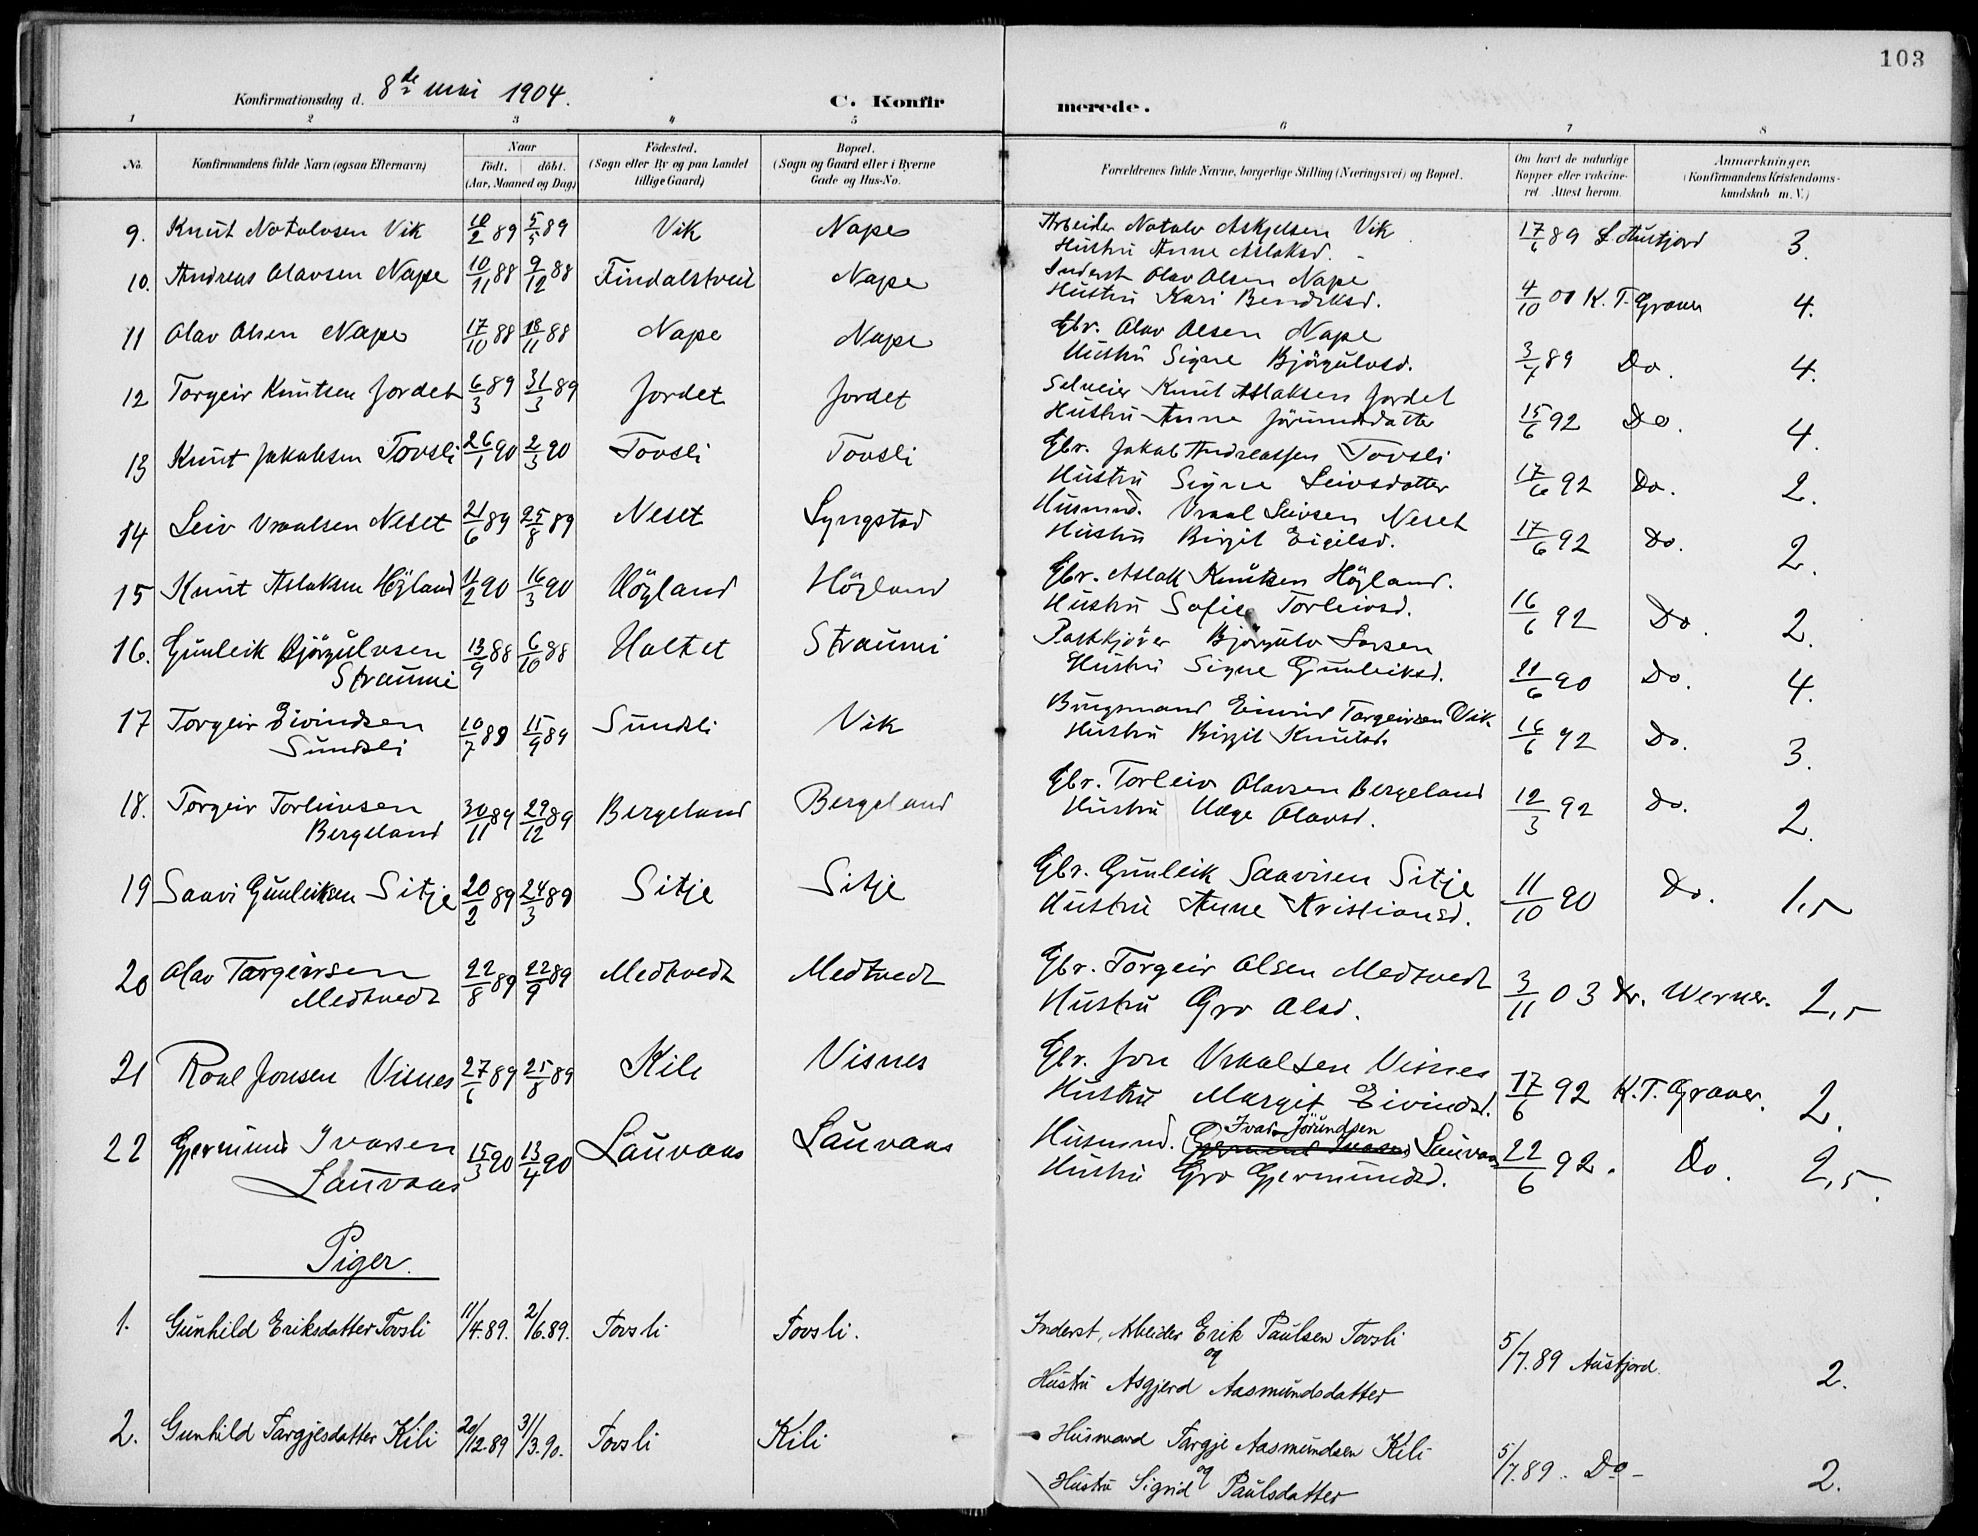 103
Konfirmationsdag d. 8de mai 1904.
C. Konfirmerede.
1 2 3 4 5 6 7 8
No. Konfirmandens fulde Navn (ogsaa Efternavn) Naar født. døbt. (Aar, Maaned og Dag) Födested. (Sogn eller By og paa Landet tillige Gaard) Bopæl. (Sogn og Gaard eller i Byerne Gade og Hus-No. Forældrenes fulde Navne, borgerlige Stilling (Næringsvei) og Bopæl. Om havt de naturlige Kopper eller vakcineret. Attest herom. Anmærkninger, (Konfirmandens Kristendomskundskab m. V.)
9. Knut Notolvsen Vik 10/2 89 5/5 89 Vik Nape Arbeider Notolv Askjelsen Vik 17/6 89 Austjord 3.
Hustru Anne Aslaksd.
10. Andreas Olavsen Nape 10/11 88 9/12 88 Findalstveit Nape Inderst Olav Olsen Nape 4/10 01 K. T. Graver 4.
Hustru Kari Bendiksd.
11 Olav Olsen Nape 17/10 88 18/11 88 Nape Nape Gbr. Olav Olsen Nape 3/7 89 Do. 4.
Hustru Signe Björgulvsd.
12 Torgeir Knutsen Jordet 6/3 89 31/3 89 Jordet Jordet Selveier Knut Aslaksen Jordet 15/6 92 Do. 4.
Hustru Anne Jörundsdatter
13 Knut Jakobsen Tovsli 26/1 90 2/3 90 Tovsli Tovsli Gbr. Jakob Andreassen Tovsli 17/6 92 Do. 2.
Hustru Signe Leivsdatter
14 Leiv Vraalsen Neset 21/6 89 25/8 89 Neset Lyngstad Husmd. Vraal Leivsen Neset 17/6 92 Do. 2.
Hustru Birgit Eigilsd.
15 Knut Aslaksen Högland 11/2 90 16/3 90 Högland Högland Gbr. Aslak Knutsen Högland. 16/6 92 Do 2.
Hustru Sofie Torleivsd.
16. Gunleik Björgulvsen Straumi 13/9 88 6/10 88 Holtet Straumi Postkjörer Björgulv Larsen 21/6 90 Do. 4.
Hustru Signe Gunleiksd.
17 Torgeir Eivindsen Sundsli 10/7 89 15/9 89 Sundsli Vik Brugsmand Eivind Torgeirsen Vik. 16/6 92 Do. 3.
Hustru Birgit Knutsd.
18. Torgeir Torleivsen Bergeland 30/11 89 29/12 89 Bergeland Bergeland Gbr. Torleiv Olavsen Bergeland 12/3 92 Do. 2.
Hustru Hæge Olavsd.
19 Saavi Gunleiksen Sitje 20/2 89 24/3 89 Sitje Sitje Gbr. Gunleik Saavisen Sitje 11/10 90 Do. 1,5
Hustru Anne Kristiansd.
20 Olav Targeirsen Medtvedt 22/8 89 22/9 89 Medtvedt Medtvedt Gbr. Torgeir Olsen Medtvedt 3/11 03 Dr. Werner. 2,5
Hustru Gro Olsd.
21 Roal Jonsen Visnes 27/6 89 25/8 89 Kile Visnes Gbr. Jon Vraalsen Visnes 17/6 92 K. T. Graver. 2.
Hustru Margit Eivindsd.
22 Gjermund Ivarsen Lauvaas 15/3 90 13/4 90 Lauvaas Lauvaas Husmnd. Ivar Jörundsen Lauvaas 22/6 92. Do. 2,5.
Hustru Gro Gjermundsd.
Piger.
1. Gunhild Eriksdatter Tovsli 11/4.89. 2/6.89. Tovsli Tovsli. Inderst, Arbeider Erik Paulsen Tovsli 5/7.89 Austjord. 2.
og
Hustru Asgjerd Aasmundsdatter
2. Gunhild Targjesdatter Kili 20/12.89 31/3.90. Tovsli Kili Husmand Targje Aasmundsen Kili 5/7.89. Do 2.
og
Hustru Sigrid Paulsdatter